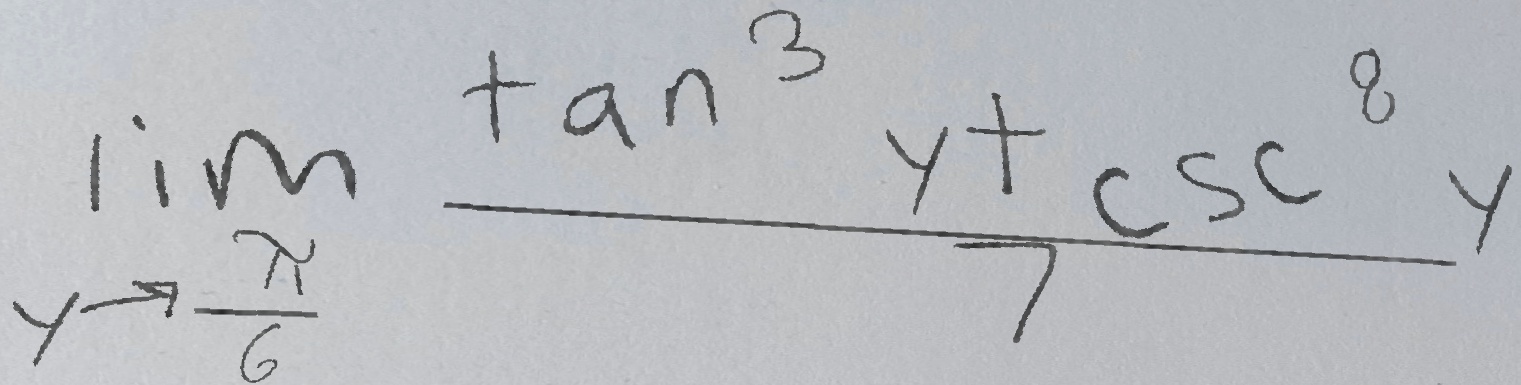 \lim_{y \to \frac{\pi}{6}} \frac{\tan^3 y + \csc^8 y}{7}